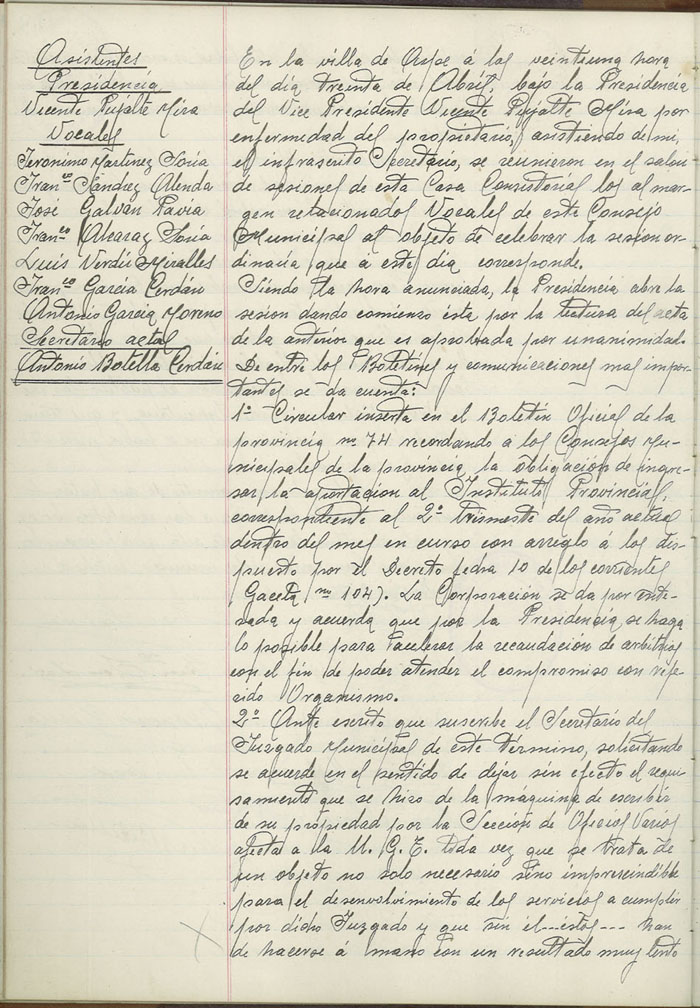 Asistentes
Presidencia
Vicente Pujalte Mira
Vocales
Jeronimo Martinez Soria
Franco Sánchez Alenda
José Galván Pavia
Franco Alcaraz Soria
Luis Verdú Miralles
Franco García Cerdán
Antonio García Moreno
Secretario actal
Antonio Botella Cerdán
En la villa de Aspe á los veintiuna hora
del día treinta de Abril, bajo la Presidencia
del Vice Presidente Vicente Pujalte Mira por
enfermedad del propietario, asistiendo de mi,
el infrascrito Secretario, se reunieron en el salon
de sesiones de esta Casa Consistorial los al mar-
gen relacionados Vocales de este Consejo
Municipal al objeto de celebrar la sesion or-
dinaria que á este día corresponde.
Siendo la hora anunciada, la Presidencia abre la
sesion dando comienzo ésta por la lectura del acta
de la anterior que es aprobada por unanimidad.
De entre los Boletines y comunicaciones mas impor-
tantes se da cuenta:
1º Circular inserta en el Boletín Oficial de la
provincia nº 74 recordando a los Consejos Mu-
nicipales de la provincia la obligación de ingre-
sar la aportación al Instituto Provincial,
correspondiente al 2º trismestre del año actual
dentro del mes en curso con arreglo á los dis-
puesto por el Decreto fecha 10 de los corrientes
Gaceta nº 104). La Corporación se da por ente-
rada y acuerda que por la Presidencia, se haga
lo posible para acelerar la recaudación de arbitrios
con el fin de poder atender el compromiso con refe-
rido Organismo.
2º Ante escrito que suscribe el Secretario del
Juzgado Municipal de este término, solicitando
se acuerde en el sentido de dejar sin efecto el requi-
samiento que se hizo de la máquina de escribir
de su propiedad por la Sección de Oficios Varios
afecta a la U. G. T. toda vez que se trata de
un objeto no solo necesario sino imprescindible
para el desenvolvimiento de los servicios a cumplir
por dicho Juzgado y que sin él---estos--- han
de hacerse á mano con un resultado muy lento